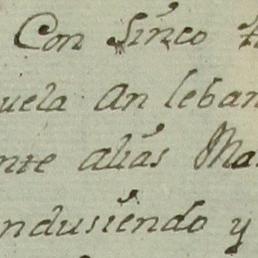 Con Sinco
uela an leban
nte alias Ma
ndusiendo y